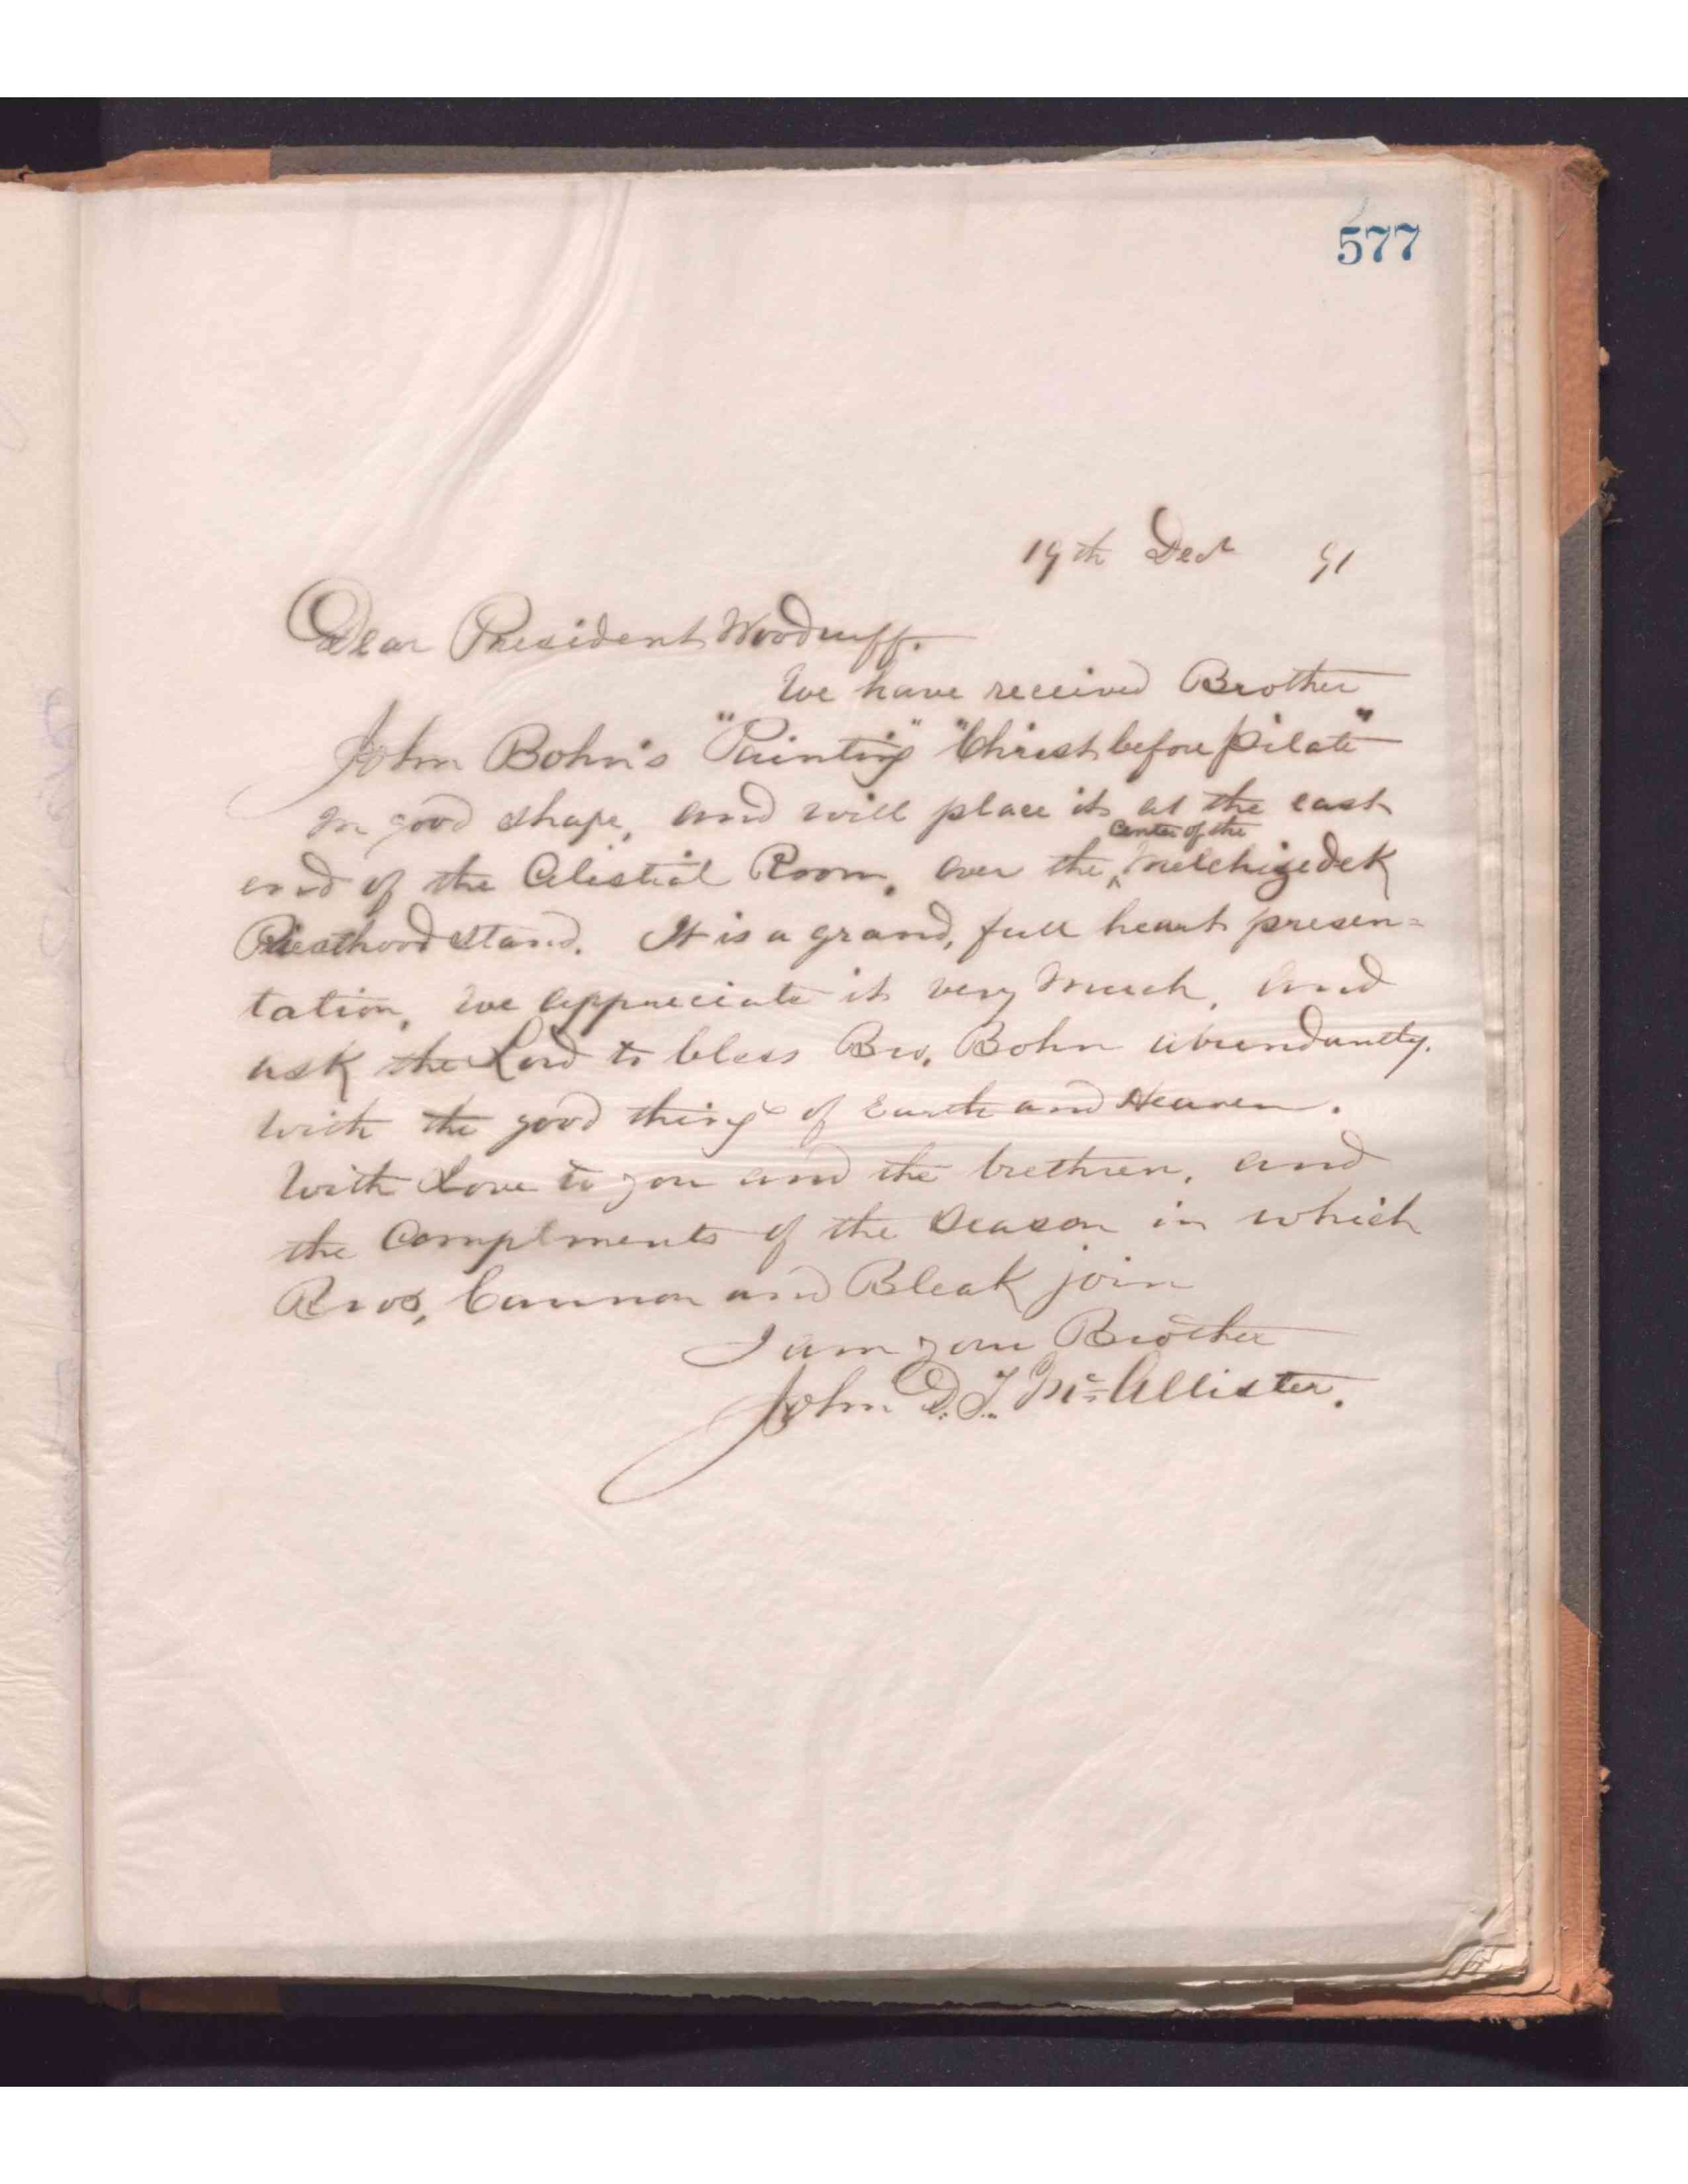 577
19th Decr 91
Dear President Woodruff.
We have received Brother
John Bohn's "Painting" "Christ before Pilate"
in good shape, and will place it at the east
center of the
end of the Celestial Room, over the ^ Melchizedek
Priesthood stand. It is a grand, full heart presen=
tation, we appreciate it very much, and
ask the Lord to bless Bro. Bohn abundantly.
with the good things of Earth and Heaven.
With Love to you and the brethren, and
the Compliments of the Season in which
Bros, Cannon and Bleak join
I am your Brother
John D. T. McAllister.